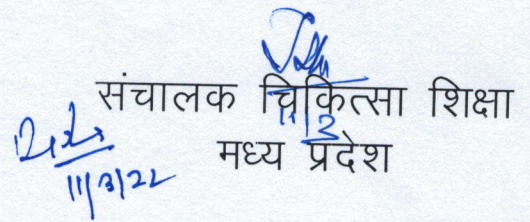 संचालक चिकित्सा शिक्षा
11/3
मध्य प्रदेश
11/3/22